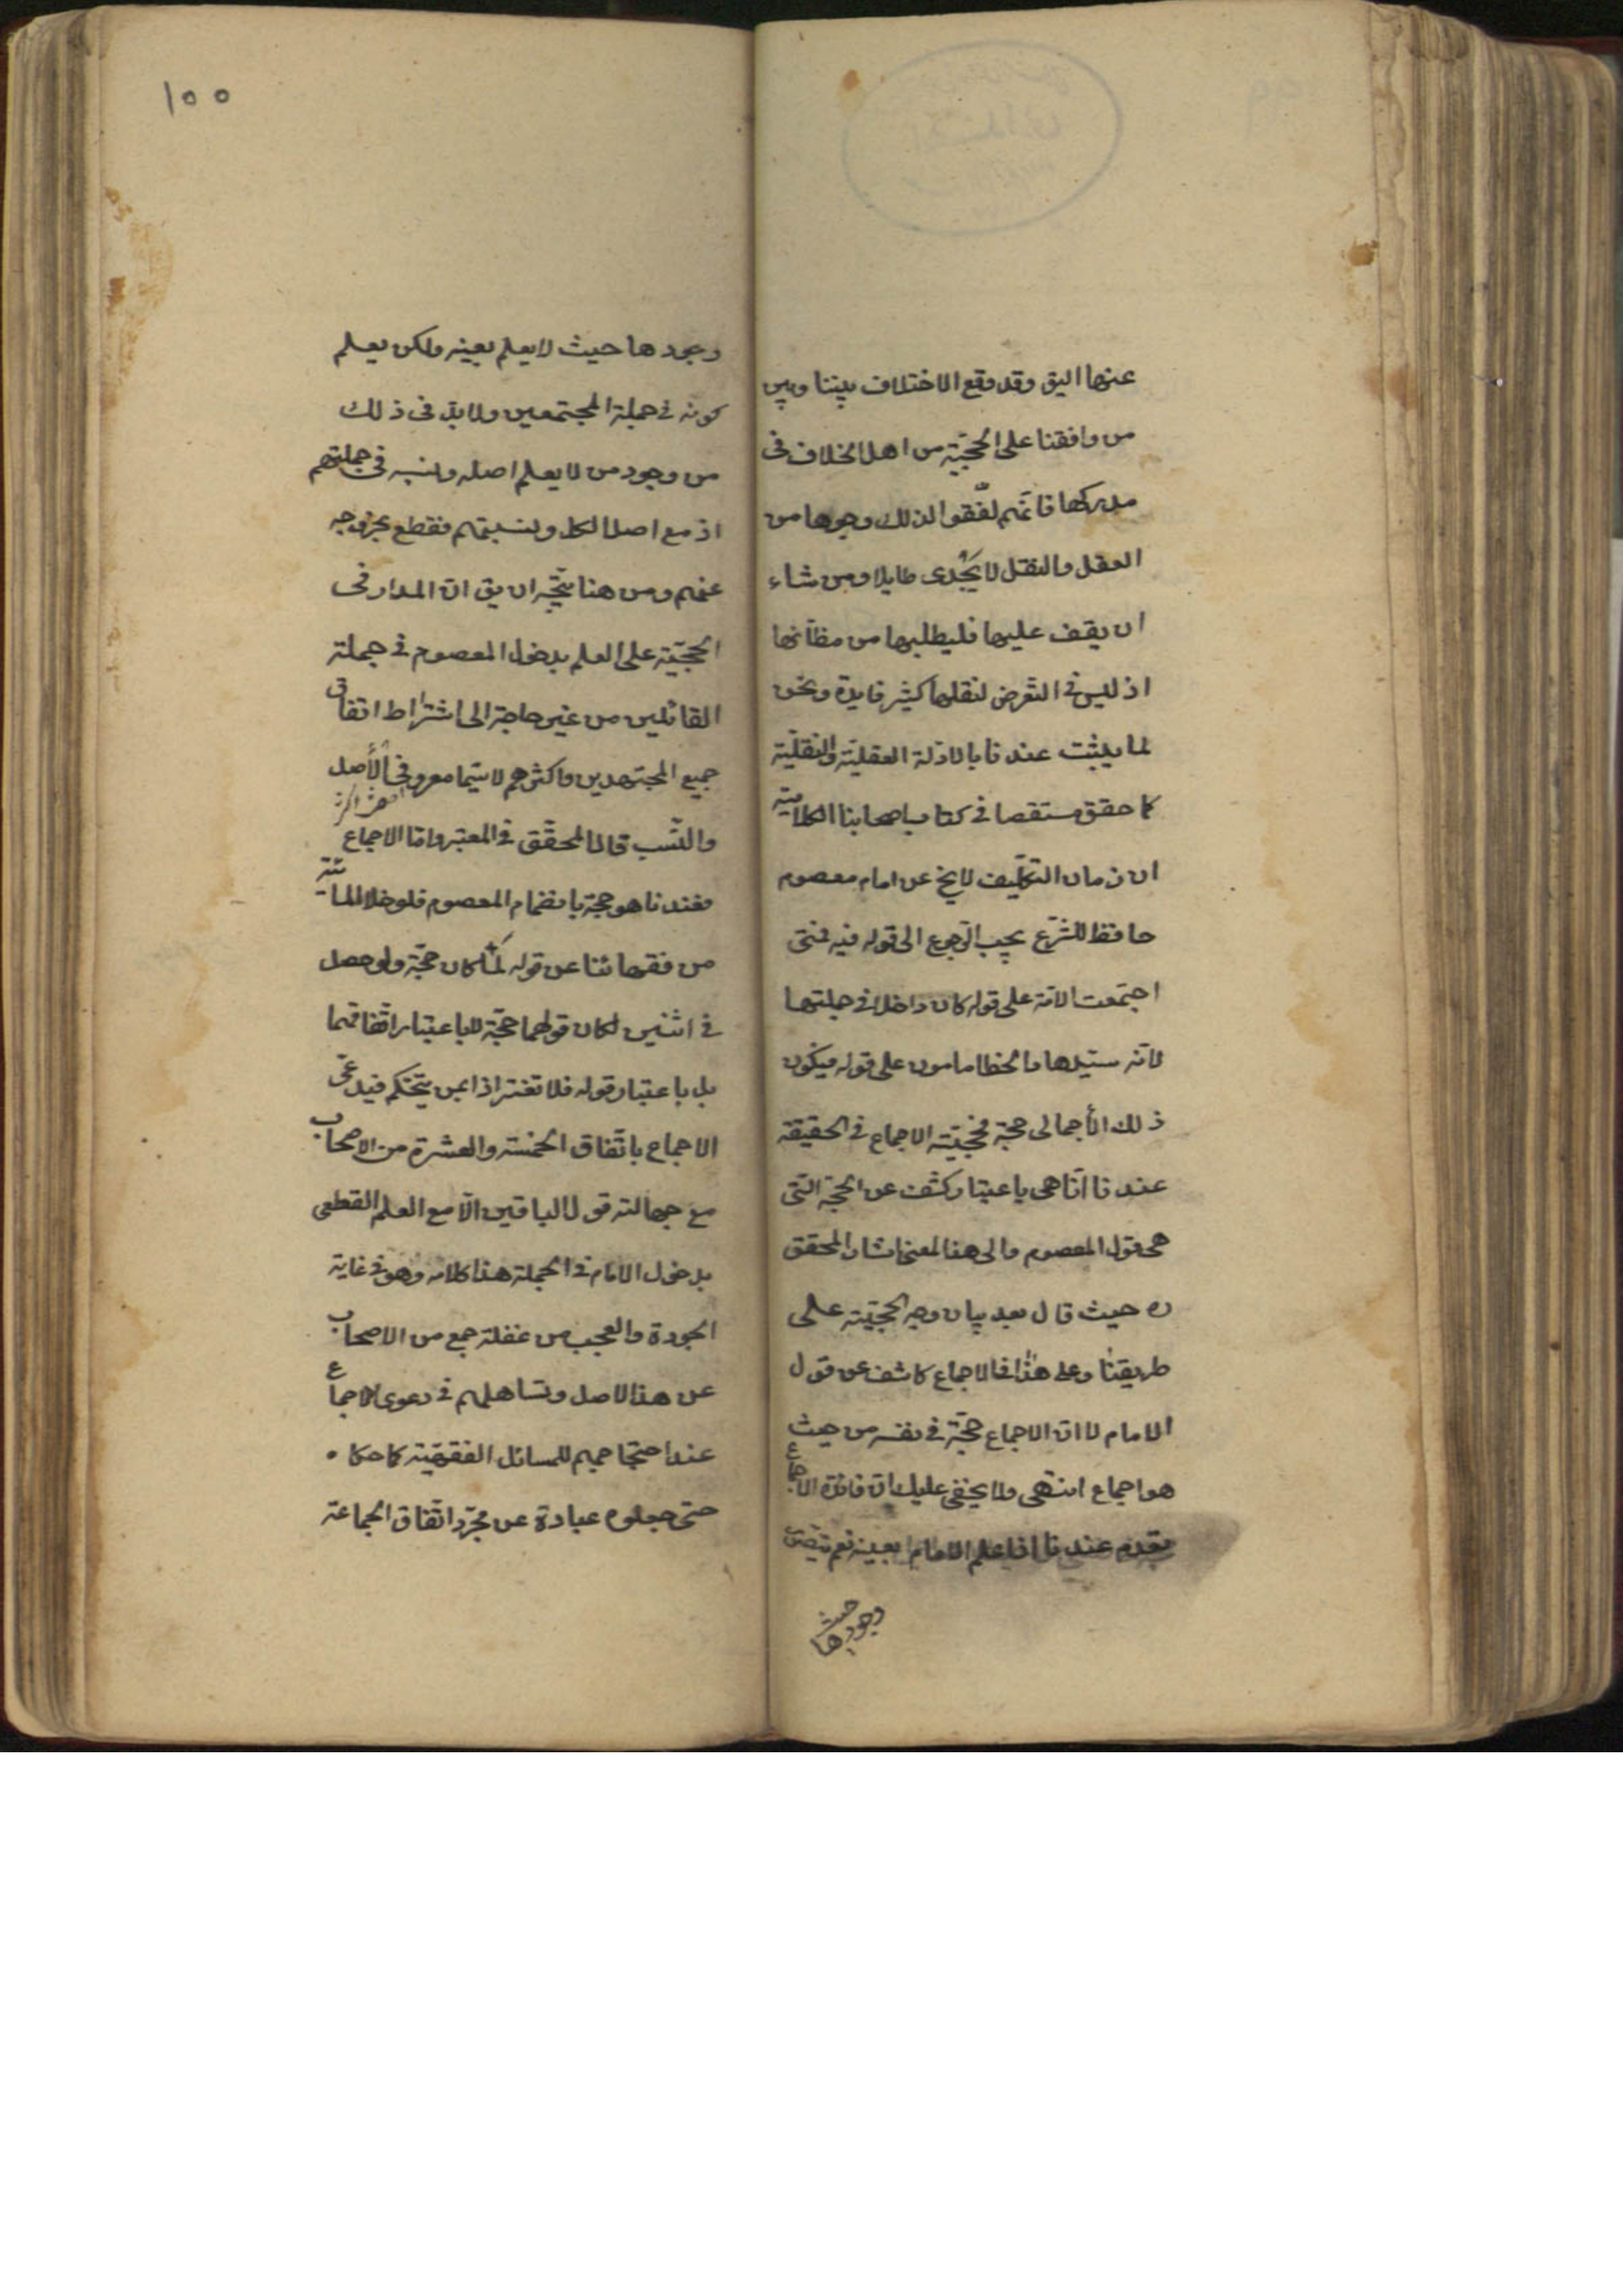 عنها اليق وقد وقع الاختلاف بيننا وبين
من وافقنا على الحجيّة من اهل الخلاف فى
مدركها فانهم لفّقوا لذلك وجوها من
العقل والنقل لا يُجدى طايلا ومن شاء
ان يقف عليها فليطلبها من مظانها
اذ ليس فى التعرض لنقلها كثير فايدة ونحن
لما يثبت عندنا بالادلة العقليّة والنقليّة
كما حقق مستقصا فى كتاب اصحابنا الكلامية
ان زمان التكليف لا يخ عن امام معصوم
حافظ للشرع يجب الرجوع الى قوله فيه فمتى
اجتمعت الامة على قوله كان داخلا فى جملتها
لانه سيدها والخطا مامون على قوله فيكون
ذلك الأجمالى حجة فحجيّة الاجماع فى الحقيقة
عندنا انما هى باعتبار كشف عن الحجة التى
هى قول المعصوم والى هذا المعنى اشار المحقق
ره حيث قال بعد بيان وجه الحجيّة على
طريقتنا وعلى هذا فالاجماع كاشف عن قول
الامام لا انّ الاجماع حجّة فى نفسه من حيث
هو اجماع انتهى ولا يخفى عليك انّ فائدة الاجماع
تعدم عندنا اذا علم الامام بعينه نعم يتصور
وجودها حيث
١٥٥
وجودها حيث لا يعلم بعينه ولكن يعلم
كونه فى جملة المجتمعين ولا بدّ فى ذلك
من وجود من لا يعلم اصله ونسبه فى جملتهم
اذ مع اصل الكل ونسبتهم فقطع بخروجه
عنهم ومن هنا يتّجه ان يق انّ المدار فى
الحجّيّة على العلم بدخول المعصوم فى جملة
القائلين من غير حاجة الى اشتراط اتفاق
جميع المجتهدين واكثرهم لا سيّما معروفى الأصل
والنّسب قال المحقّق فى المعتبر وامّا الاجماع
فعندنا هو حجة بانضمام المعصوم فلو خلا المائة
من فقهائنا عن قوله لمّا كان حجّة ولو حصل
فى اثنين لكان قولهما حجّة لا باعتبار اتّفاقهما
بل باعتبار قوله فلا تغتر اذا بمن يتحكم فيدعى
الاجماع باتّفاق الخمسة والعشرة من الاصحاب
مع جهالته قول الباقين الّا مع العلم القطعى
بدخول الامام فى الجملة هذا كلامه وهو فى غاية
الجودة والعجب من غفلة جمع من الاصحاب
عن هذا الاصل وتساهلهم فى دعوى الاجماع
عند احتجاجهم للمسائل الفقهيّة كما حكاه
حتى جعلوه عبارة عن مجرّد اتّفاق الجماعة